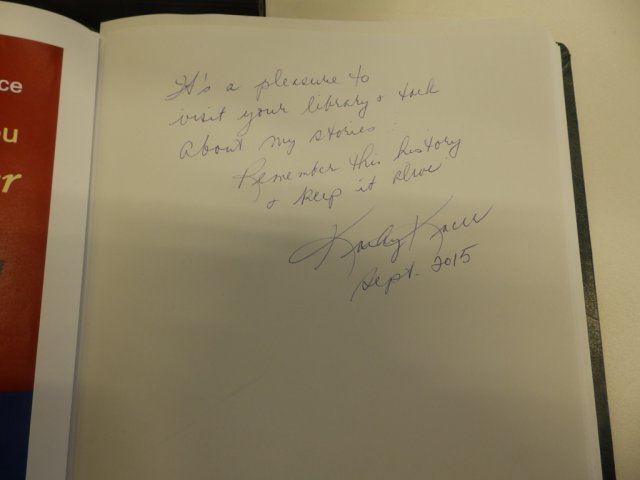 ce
u
r
It's a pleasure to
visit your library & talk
about my stories.
Remember this history
& keep it alive
Kathy Kacer
Sept. 2015